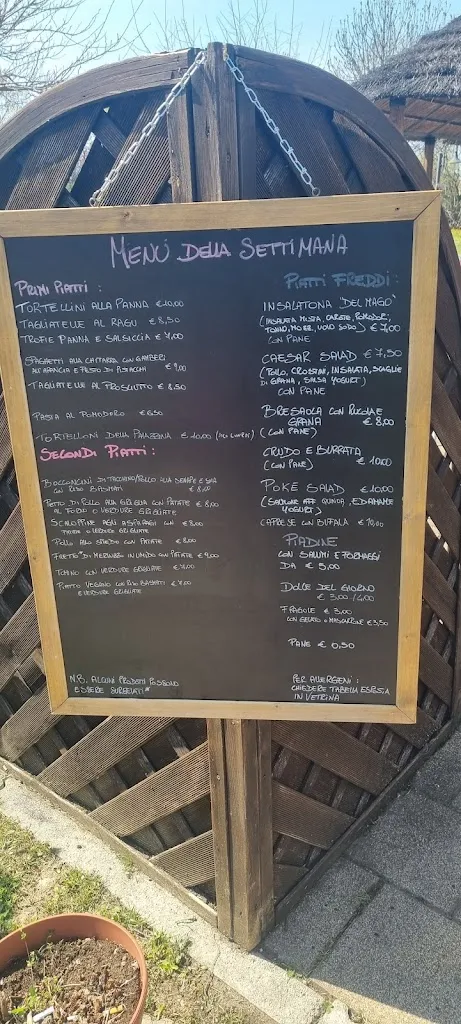 MENÙ DELLA SETTIMANA
PRIMI PIATTI :
TORTELLINI ALLA PANNA €10,00
TAGLIATELLE AL RAGU € 8,50
TROFIE PANNA E SALSICCIA € 7,00
SPAGHETTI ALLA CHITARRA CON GAMBERI
ALL'ARANCIA E PESTO DI PISTACCHI € 9,00
TAGLIATELLE AL PROSCIUTTO € 8,50
PASTA AL POMODORO €6,50
TORTELLONI DELLA € 10,00
SECONDI PIATTI :
BOCCONCINI DI TACCHINO/POLLO ALLA SENAPE E SOIA
CON RISO BASMATI € 8,00
PETTO DI POLLO ALLA GRIGLIA CON PATATE € 8,00
AL FORNO O VERDURE GRIGLIATE
SCALOPPINE AGLI ASPARAGI CON € 8,00
O VERDURE GRIGLIATE
POLLO ALLO SPIEDO CON PATATE € 8,00
FILETTO* DI MERLUZZO IN UMIDO CON PATATE € 9,00
TOMINO CON VERDURE GRIGLIATE
PIATTO VEGANO CON RISO BASMATI
E VERDURE GRIGLIATE
N.B. ALCUNI PRODOTTI POSSONO
ESSERE SURGELATI*
PIATTI FREDDI :
INSALATONA "DEL MAGO"
(INSALATA MISTA, CAROTE, POMODORI,
TONNO, MOZZ, UOVO SODO) € 7,00
CON PANE
CAESAR SALAD € 7,50
(POLLO, CROSTINI, INSALATA, SCAGLIE
DI GRANA, SALSA YOGURT)
CON PANE
BRESAOLA CON RUCOLA E
GRANA € 8,00
(CON PANE)
CRUDO E BURRATA
(CON PANE) € 10,00
POKÈ SALAD € 10,00
(SALMONE AFF QUINOA, EDAMAME
YOGURT)
CAPRESE CON BUFALA € 10,00
PIADINE
CON SALUMI E FORMAGGI
DA € 5,00
DOLCE DEL GIORNO
€ 3,00 / 4,00
FRAGOLE € 3,00
CON GELATO O MASCARPONE €3,50
PANE € 0,50
PER ALLERGENI :
CHIEDERE TABELLA ESPOSTA
IN VETRINA